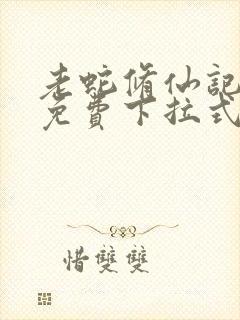 老蛇脩仙記
免費下拉式
惜雙雙